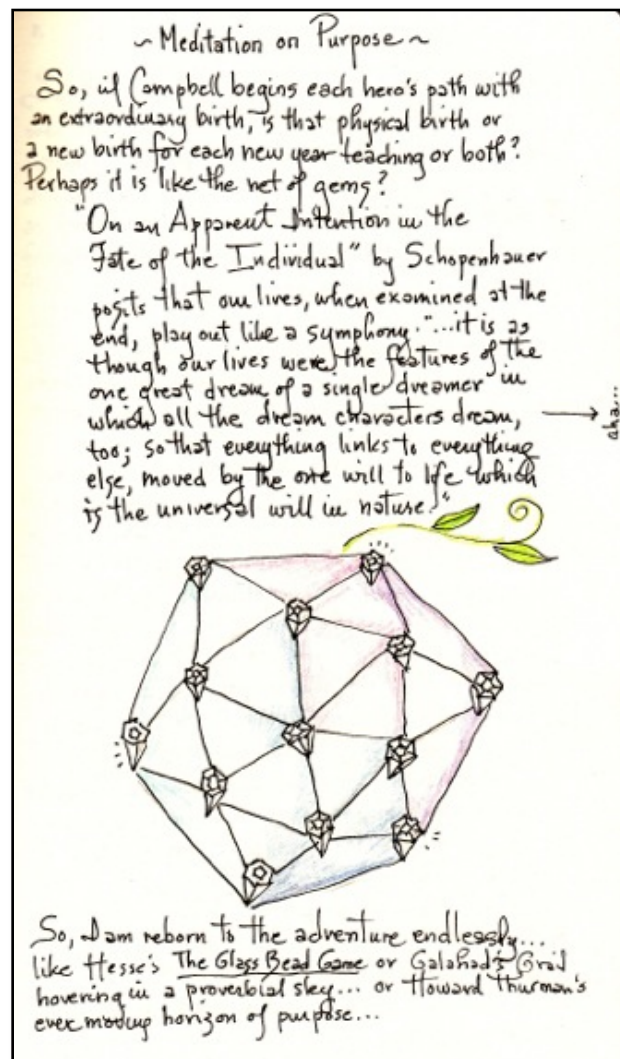 ~ Meditation on Purpose ~
So, if Campbell begins each hero's path with
an extraordinary birth, is that physical birth or
a new birth for each new year teaching or both?
Perhaps it is like the net of gems?
"On an Apparent Intention in the
Fate of the Individual" by Schopenhauer
posits that our lives, when examined at the
end, play out like a symphony. "...it is as
though our lives were the features of the
one great dream of a single dreamer in
which all the dream characters dream,
too; so that everything links to everything
else, moved by the one will to life which
is the universal will in nature."
aha...
So, I am reborn to the adventure endlessly...
like Hesse's The Glass Bead Game or Galahad's Grail
hovering in a proverbial sky... or Howard Thurman's
ever moving horizon of purpose...